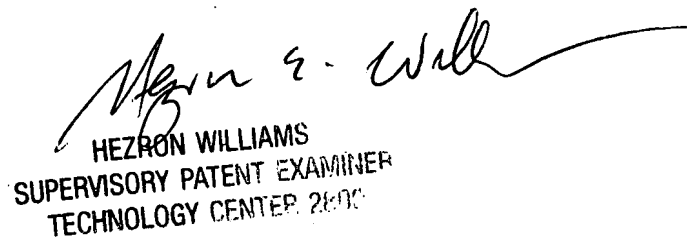 Hezron E. Will
HEZRON WILLIAMS
SUPERVISORY PATENT EXAMINER
TECHNOLOGY CENTER